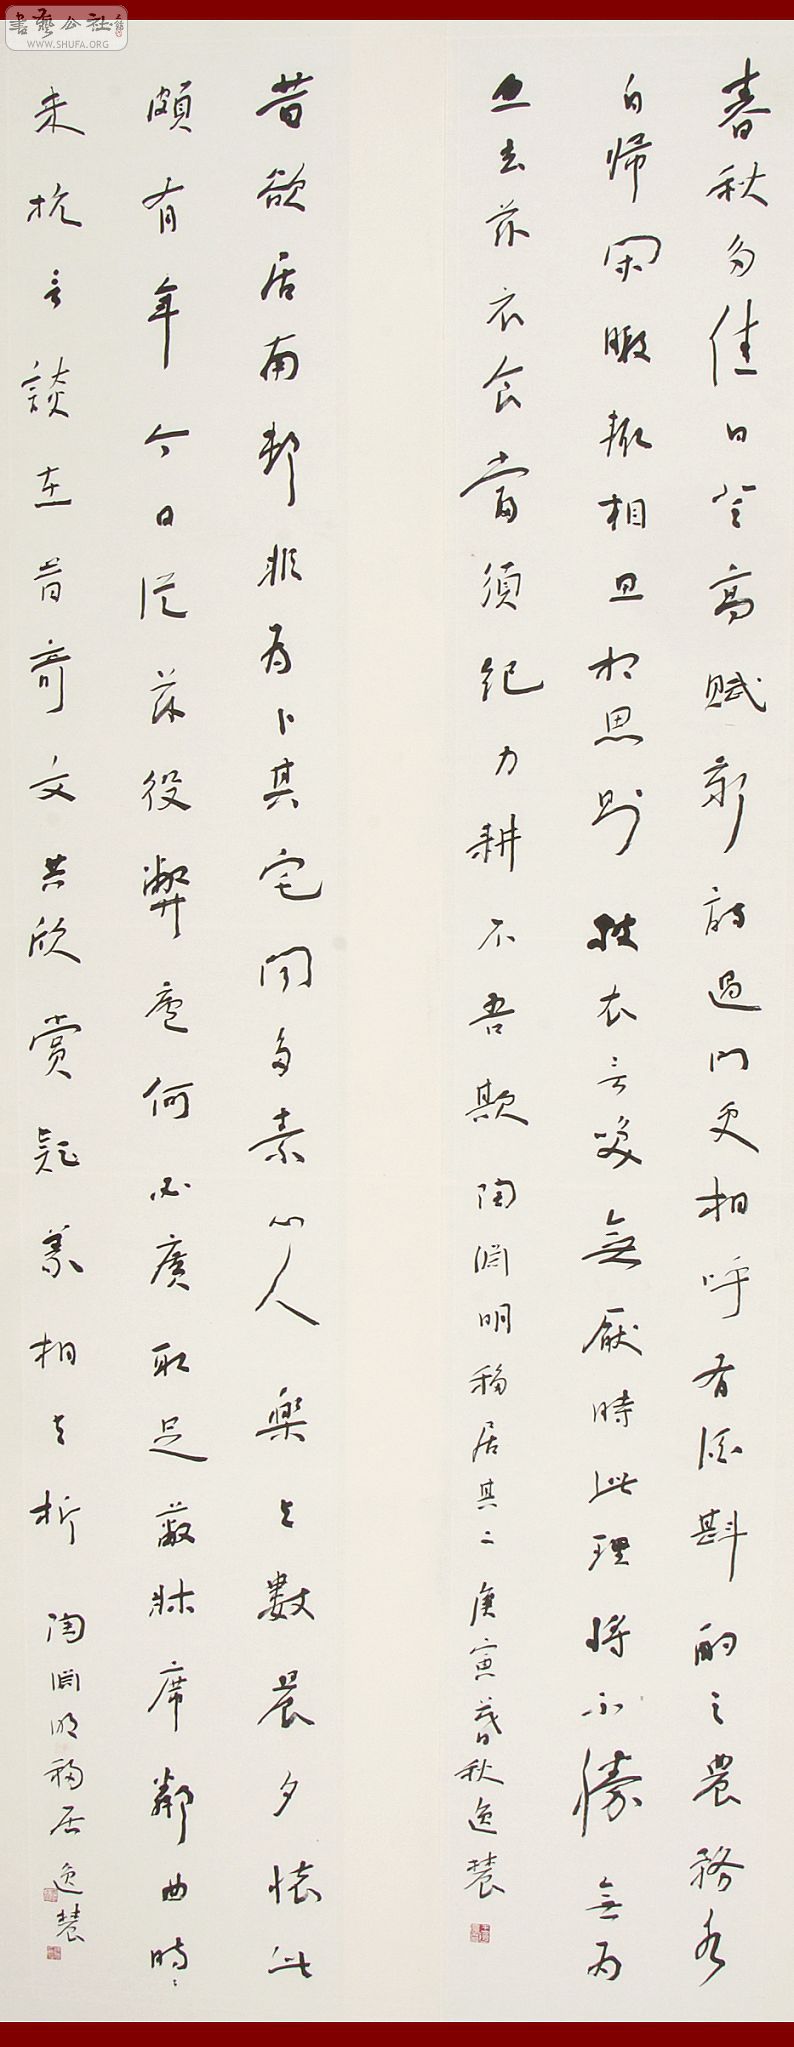 書藝公社
WWW.SHUFA.ORG
春秋多佳日登高賦新詩過門更相呼有酒斟酌之農務各
自帰閑暇輒相思相思則披衣言咲無厭時此理將不勝無為
忽去茲衣食當須紀力耕不吾欺 陶淵明移居其二 庚寅暮秋逸農
昔欲居南邨非為卜其宅聞多素心人樂与數晨夕懷此
頗有年今日從茲役弊廬何必廣取足蔽牀席鄰曲時々
来抗言談在昔奇文共欣賞疑義相与析 陶淵明移居 逸農